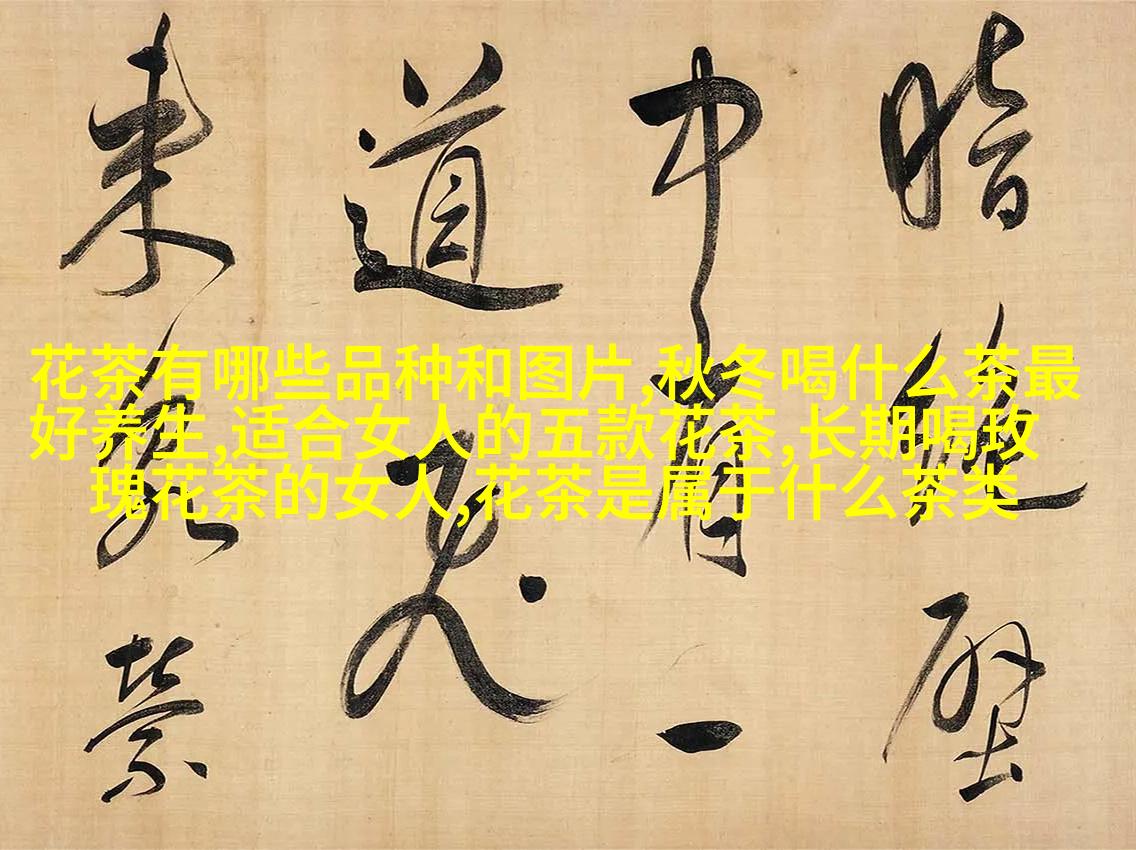 花茶有哪些品种和图片,秋冬喝什么茶最
好养生,适合女人的五款花茶,长期喝玫
瑰花茶的女人,花茶是属于什么茶类
暗絶
中有
道飛
来泉縈